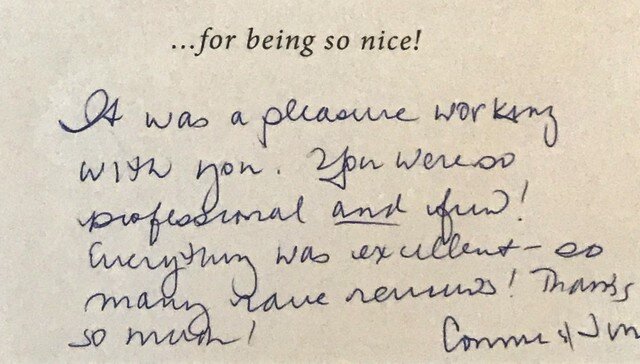 ...for being so nice!
It was a pleasure working
with you. You were so
professional and fun!
Everything was excellent - so
many rave reviews! Thanks
so much! Connie & Jim